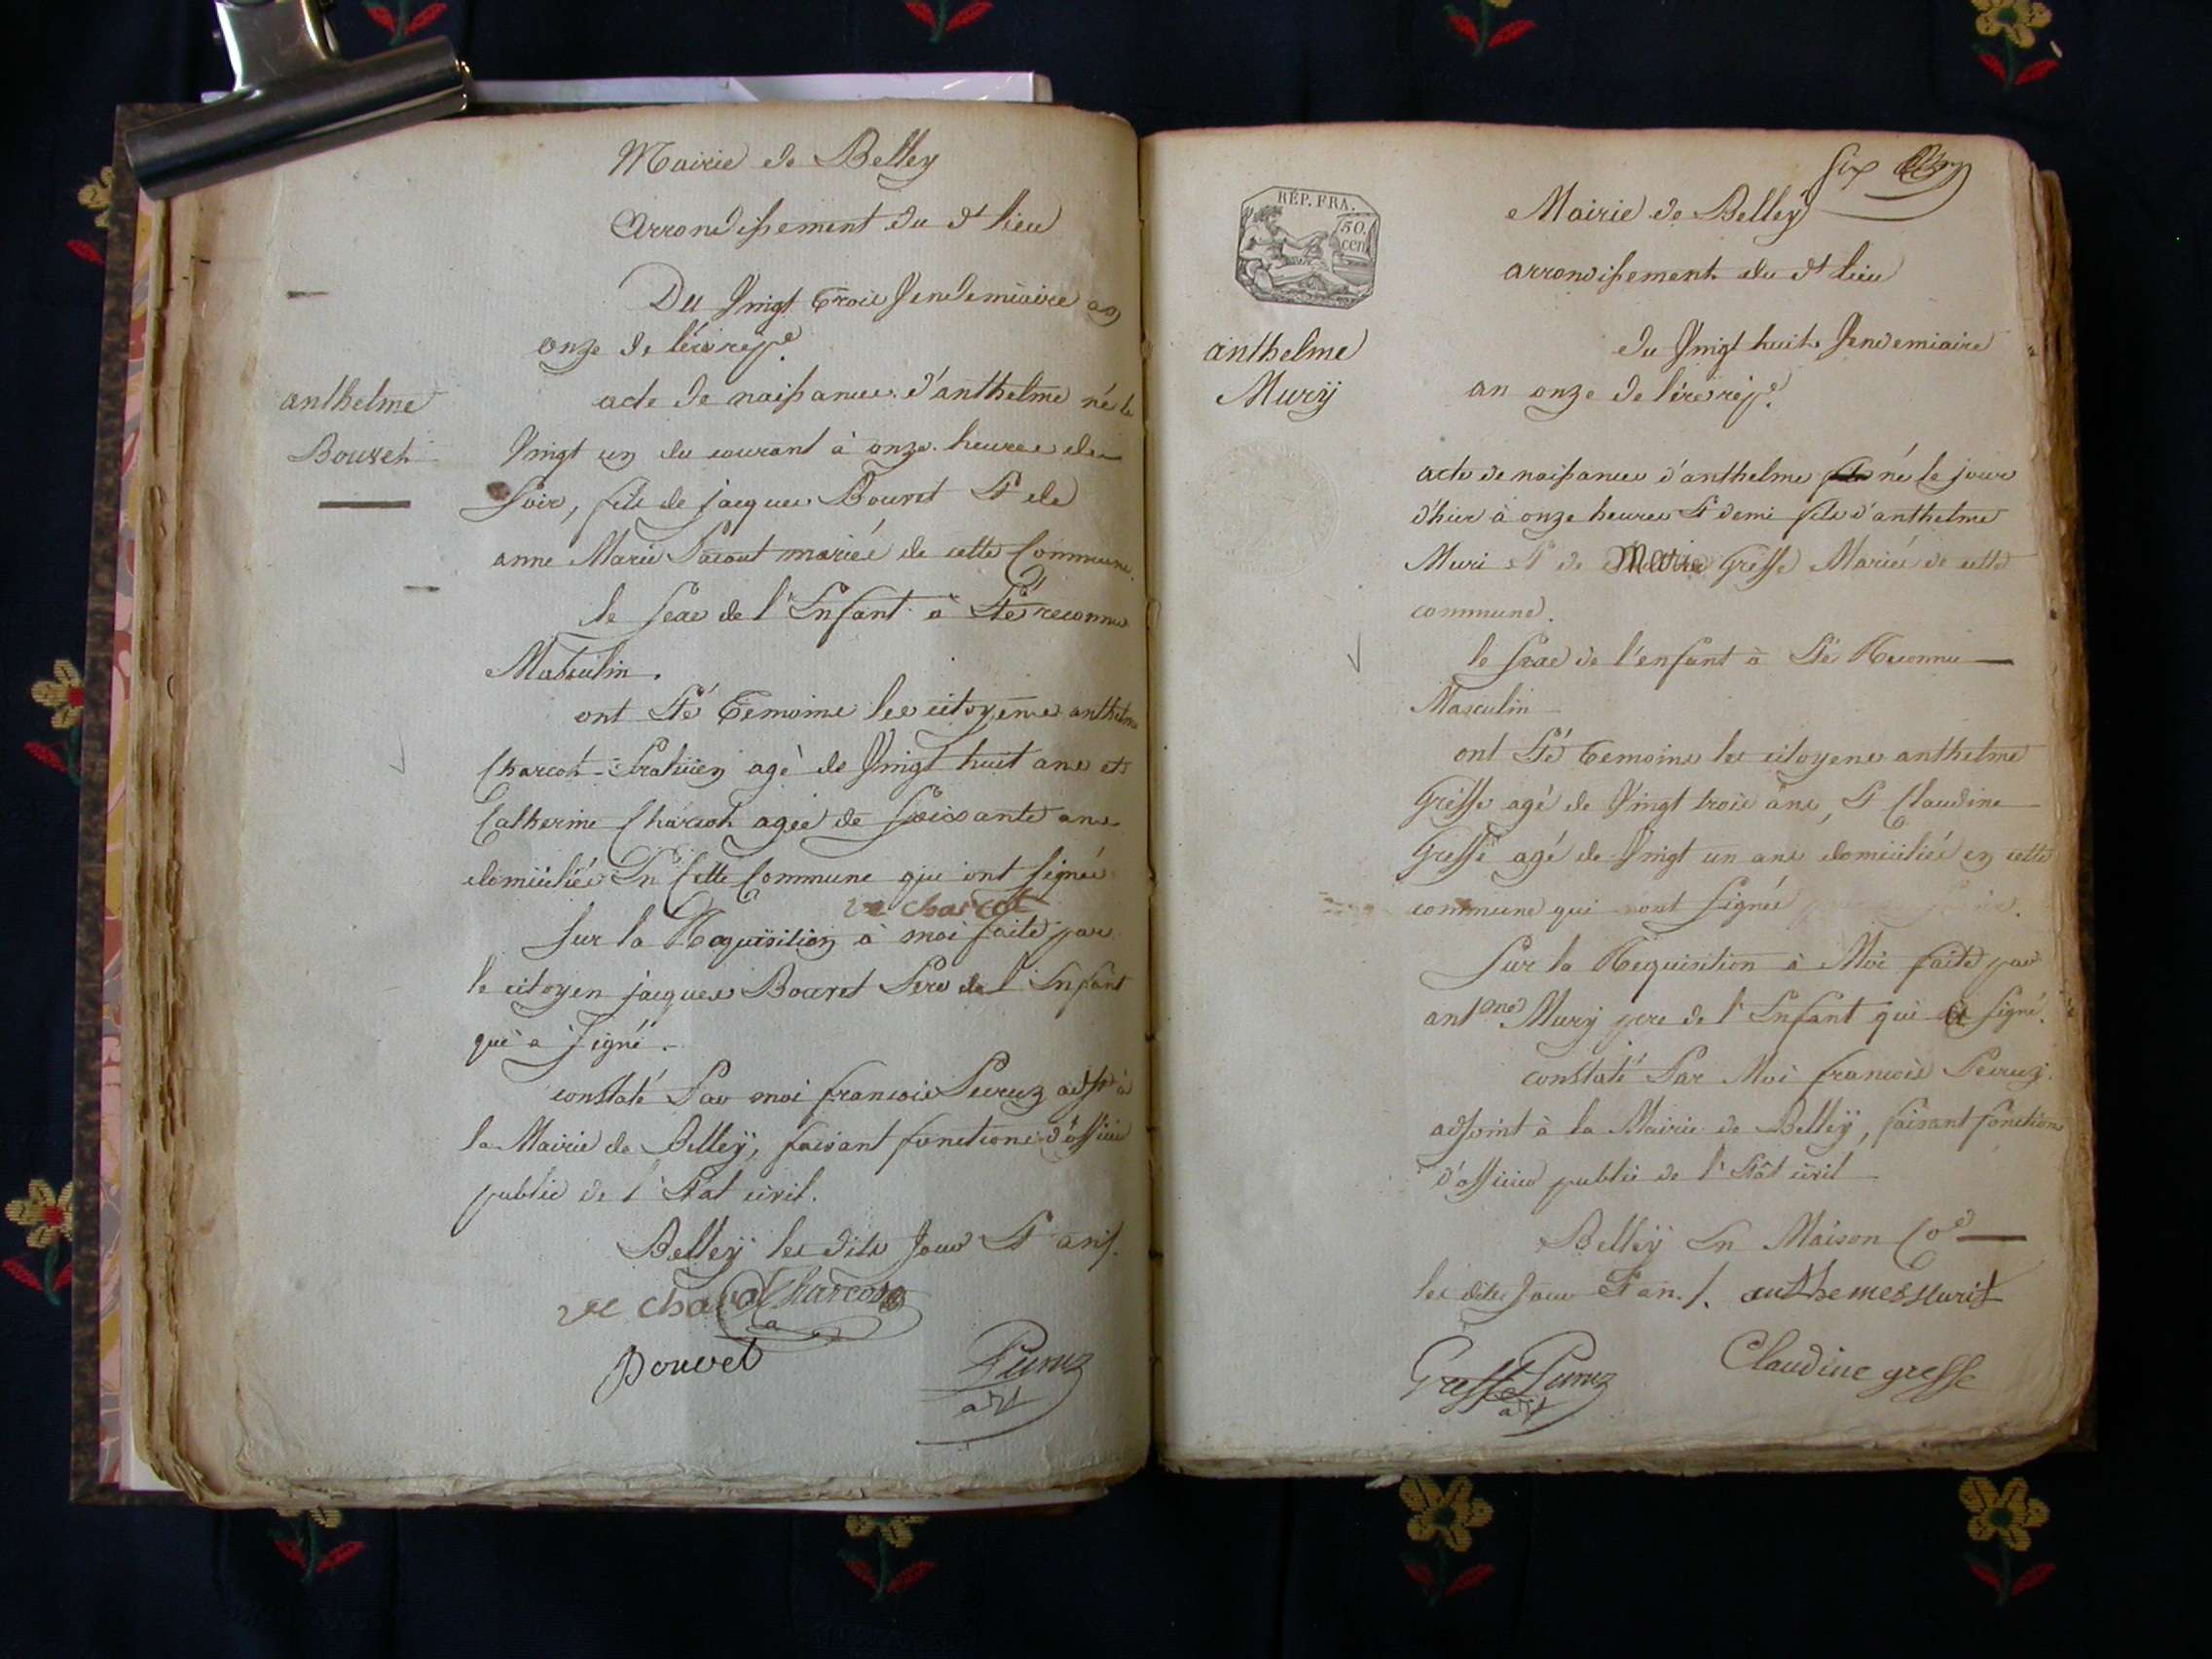 Mairie de Belley
arrondissement du dt lieu
Du Vingt trois Vendemiaire an
onze de l'ère rép.e
anthelme
Bouvet
acte de naissance d'anthelme né le
Vingt un du courant à onze heures du
soir, fils de jacques Bouvet Et de
anne Marie mariés de cette Commune.
le sexe de l'Enfant à Eté reconnu
Masculin.
ont Eté temoins les citoyens anthelme
Charcot agé de Vingt huit ans et
Catherine Charcot agée de soixante ans
domiciliés En Cette Commune qui ont signés
charcot
sur la Requisition à moi faite par
le citoyen jacques Bouvet Père de l'Enfant
qui a signé.
constaté Par moi francois Peruz adjt à
la Mairie de Belleÿ, faisant fonctions d'officier
public de l'Etat civil.
Belleÿ les dits Jour Et an
Charcot
Bouvet
Peruz
adt
six
RÉP. FRA.
50.
cen
Mairie de Belleÿ
arrondissement du dt lieu
du Vingt huit Vendemiaire
an onze de l'ère rép.e
anthelme
Murÿ
acte de naissance d'anthelme né le jour
d'hier à onze heures Et demi fils d'anthelme
Muri Et de Marie Gresse Mariés de cette
commune.
le sexe de l'enfant à Eté Reconnu
Masculin
ont Eté temoins les citoyens anthelme
Gresse agé de Vingt trois ans, Et Claudine
Gresse agé de Vingt un ans domiciliés en cette
commune qui ont signés
Sur la Requisition à Moi faite par
antme Murÿ pere de l'Enfant qui a signé.
constaté Par Moi francois Peruz
adjoint à la Mairie de Belleÿ, faisant fonctions
d'officier public de l'Etat civil
Belleÿ En Maison Coe
les dits Jour Et an. anthemes Murit
Gresse Peruz Claudine gresse
adt